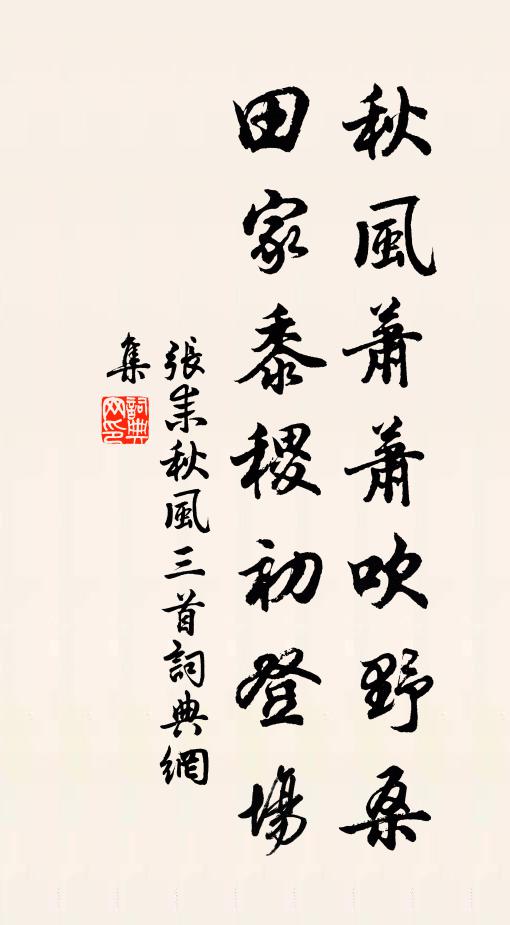 秋風蕭蕭吹野桑
田家黍稷初登場
張耒秋風三首詞典網
集
詞典
网印